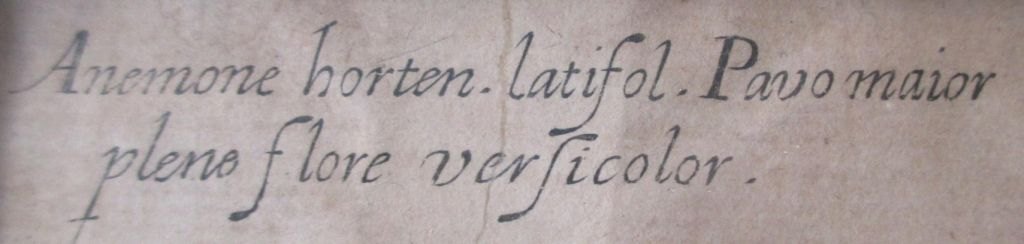 Anemone horten. latifol. Pavo maior
pleno flore verſicolor.